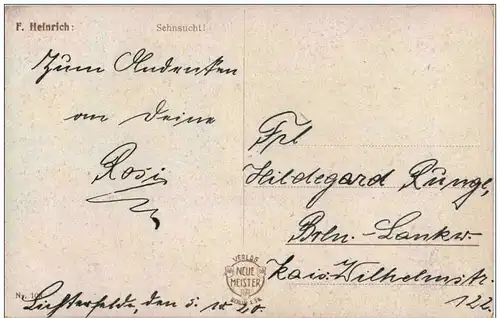 F. Heinrich: Sehnsucht!
Zum Andenken
an Deine
Rosi
Frl
Hildegard Runge,
Brln.-Lankw.
Kais. Wilhelmstr.
122.
VERLAG
NEUE
MEISTER
Lichterfelde, den 5.